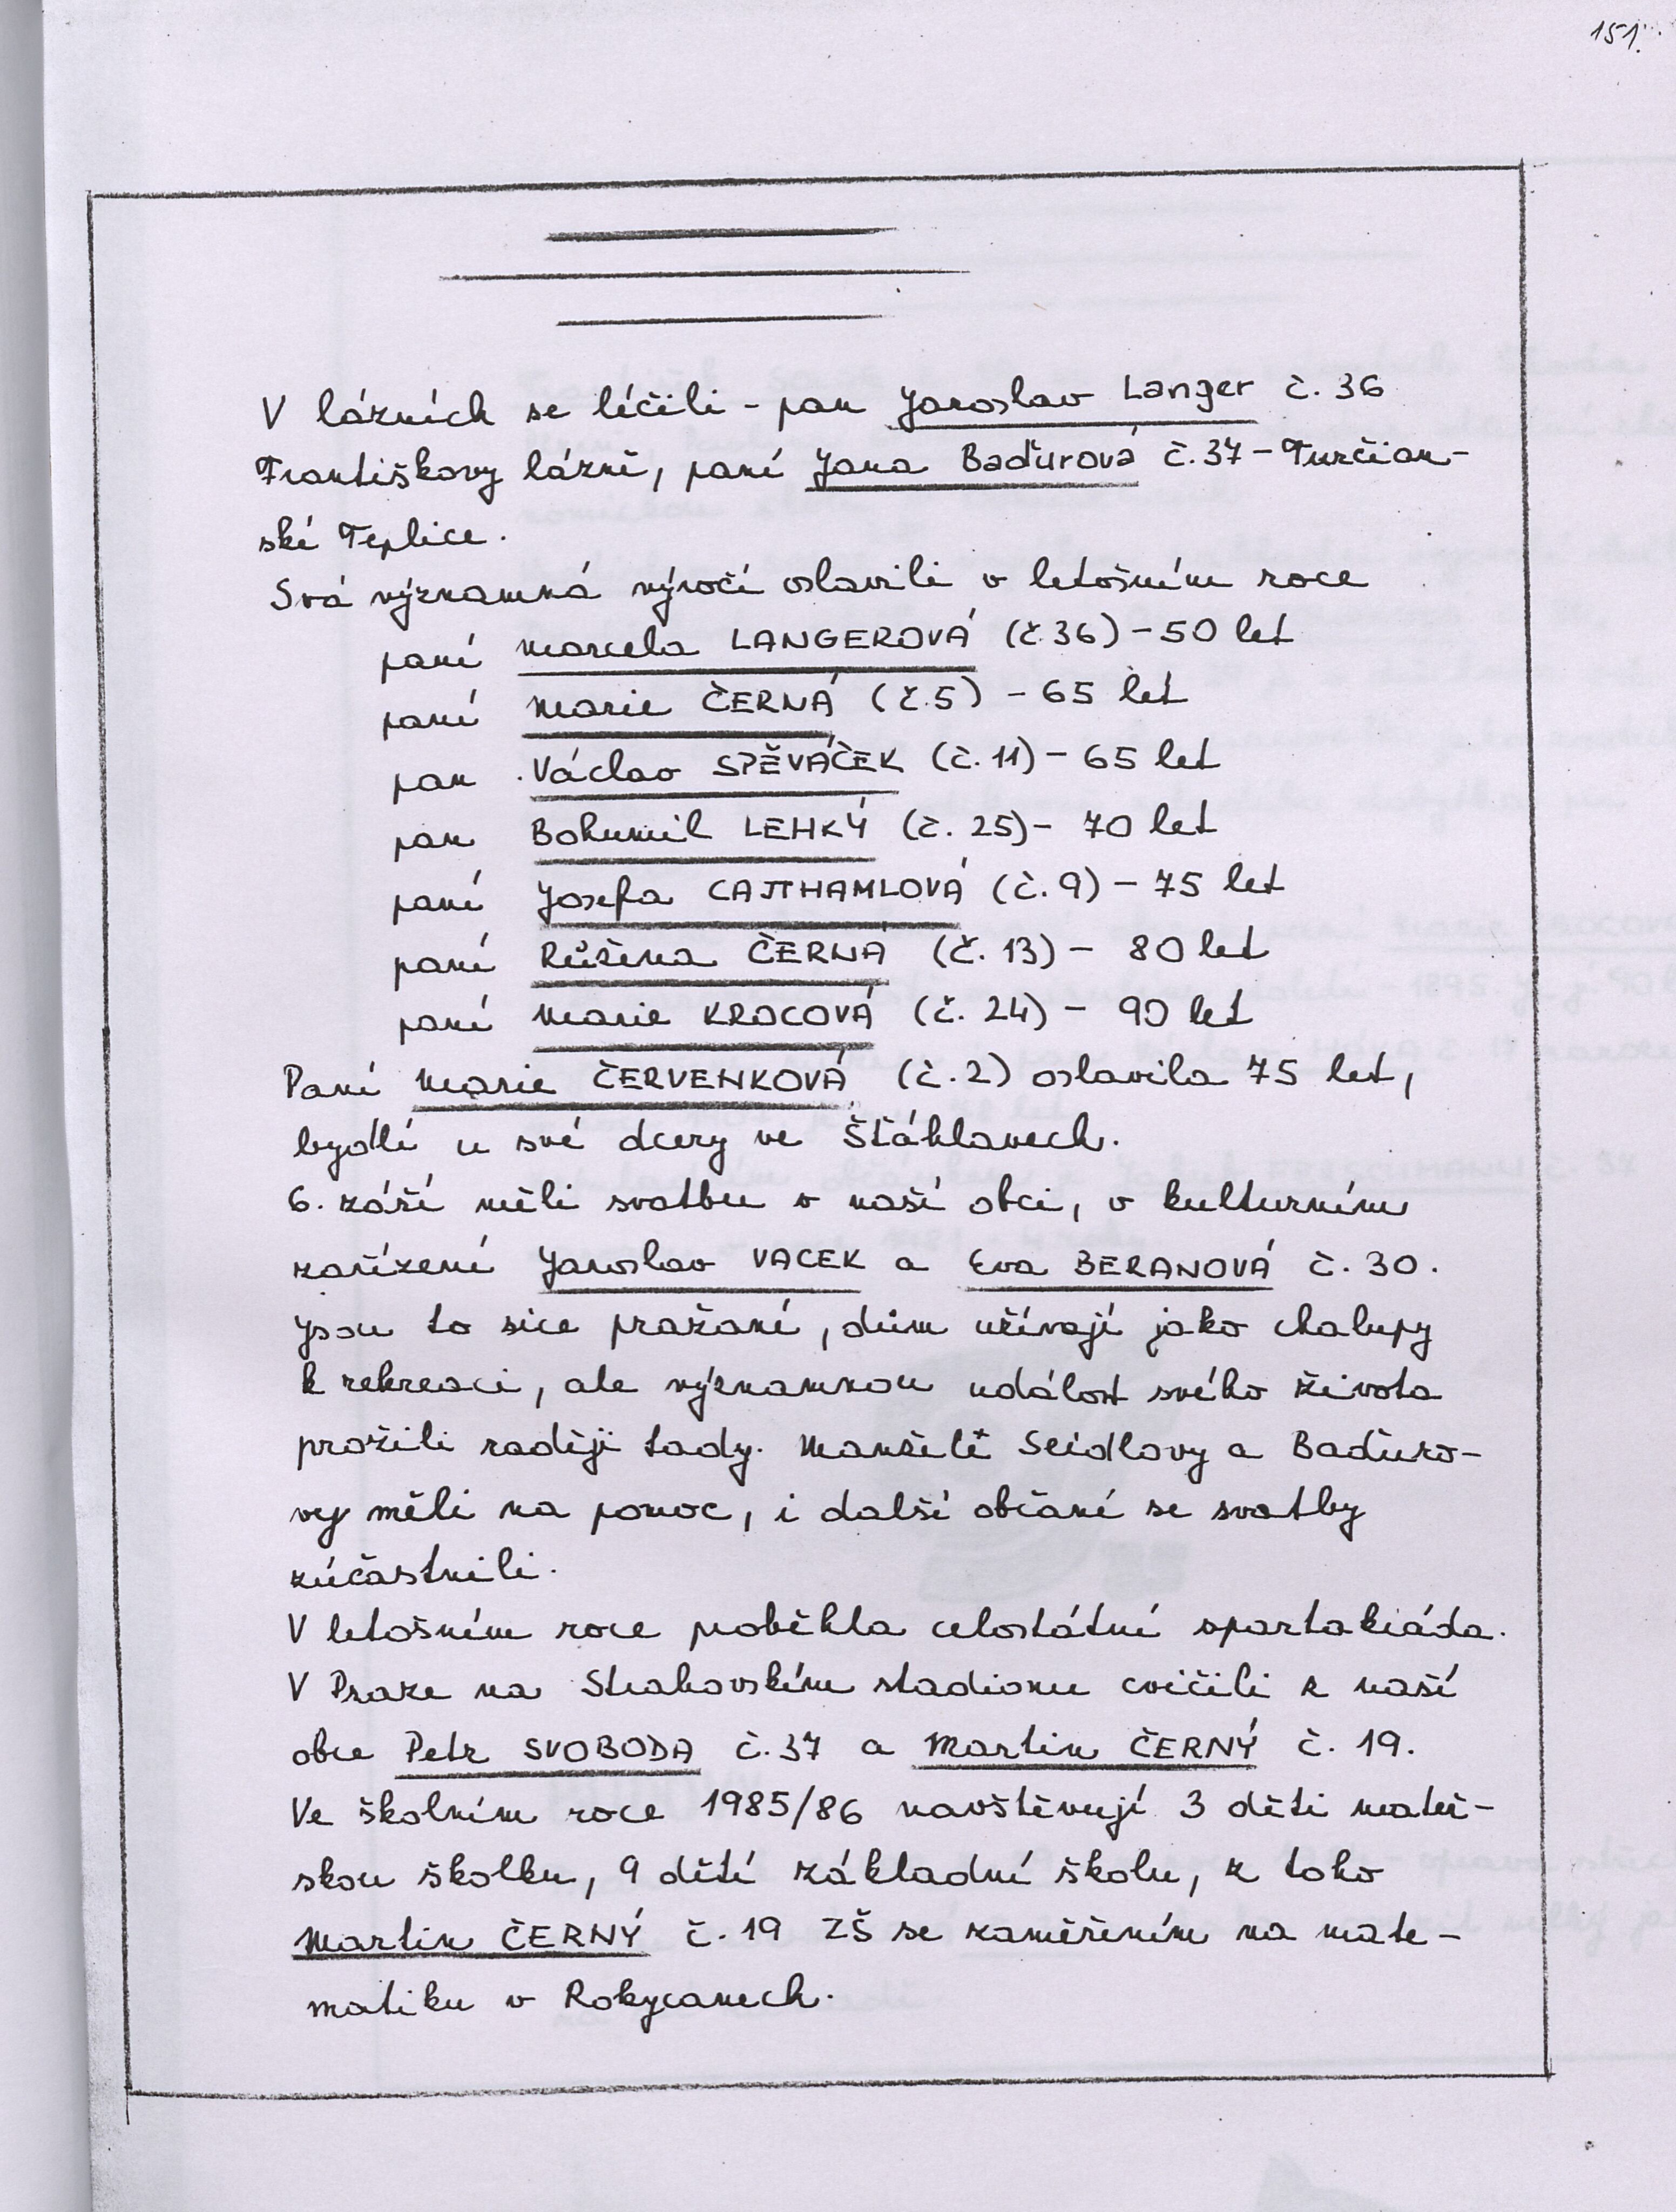 151.
V lázních se léčili - pan Jaroslav Langer č. 36
Františkovy lázně, paní Jana Baďurová č. 37 - Turčian-
ské Teplice.
Svá významná výročí oslavili v letošním roce
paní Marcela LANGEROVÁ (č. 36) - 50 let
paní Marie ČERNÁ (č. 5) - 65 let
pan Václav SPĚVÁČEK (č. 11) - 65 let
pan Bohumil LEHKÝ (č. 25) - 70 let
paní Josefa CAJTHAMLOVÁ (č. 9) - 75 let
paní Růžena ČERNÁ (č. 13) - 80 let
paní Marie KROCOVÁ (č. 24) - 90 let
Paní Marie ČERVENKOVÁ (č. 2) oslavila 75 let,
bydlí u své dcery ve Šťáhlavech.
6. září měli svatbu v naší obci, v kulturním
zařízení Jaroslav VACEK a Eva BERANOVÁ č. 30.
Jsou to sice pražané, dům užívají jako chalupy
k rekreaci, ale významnou událost svého života
prožili raději tady. Manželé Seidlovy a Baďuro-
vy měli na pomoc, i další občané se svatby
zúčastnili.
V letošním roce proběhla celostátní spartakiáda.
V Praze na Strahovském stadionu cvičili z naší
obce Petr SVOBODA č. 37 a Martin ČERNÝ č. 19.
Ve školním roce 1985/86 navštěvují 3 děti mateř-
skou školku, 9 dětí základní školu, z toho
Martin ČERNÝ č. 19 ZŠ se zaměřením na mate-
matiku v Rokycanech.